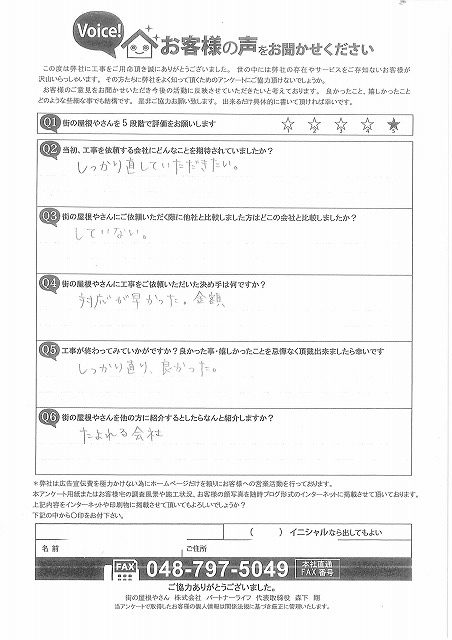 Voice!
お客様の声をお聞かせください
この度は弊社に工事をご用命頂き誠にありがとうございました。世の中には弊社の存在やサービスをご存知ないお客様が
沢山いらっしゃいます。その方たちに弊社をよく知って頂くためのアンケートにご協力頂けないでしょうか。
お客様のご意見をお聞かせいただき今後の活動に反映させていただきたいと考えております。良かったこと、嬉しかったこと
どのような些細な事でも結構です。是非ご協力お願い致します。出来るだけ具体的に書いて頂ければ幸いです。
Q1 街の屋根やさんを5段階で評価をお願いします
1 2 3 4 5
Q2 当初、工事を依頼する会社にどんなことを期待されていましたか？
しっかり直していただきたい。
Q3 街の屋根やさんにご依頼いただく際に他社と比較しました方はどこの会社と比較しましたか？
していない。
Q4 街の屋根やさんに工事をご依頼いただいた決め手は何ですか？
対応が早かった。金額
Q5 工事が終わってみていかがですか？良かった事・嬉しかったことを忌憚なく頂戴出来ましたら幸いです
しっかり直り、良かった。
Q6 街の屋根やさんを他の方に紹介するとしたらなんと紹介しますか？
たよれる会社
＊弊社は広告宣伝費を極力かけない為にホームページだけを頼りにお客様への営業活動を行っております。
本アンケート用紙またはお客様宅の調査風景や施工状況、お客様の顔写真を随時ブログ形式のインターネットに掲載させて頂いております。
上記内容をインターネットや印刷物に掲載させて頂いてもよろしいでしょうか？
下記の中から〇印をお付下さい。
（　　）イニシャルなら出してもよい
名前
ご住所
FAX 048-797-5049 本社直通 FAX番号
ご協力ありがとうございました。
街の屋根やさん 株式会社 パートナーライフ 代表取締役 森下 翔
当アンケートで取得したお客様の個人情報は関係法規に基づき厳正に管理いたします。